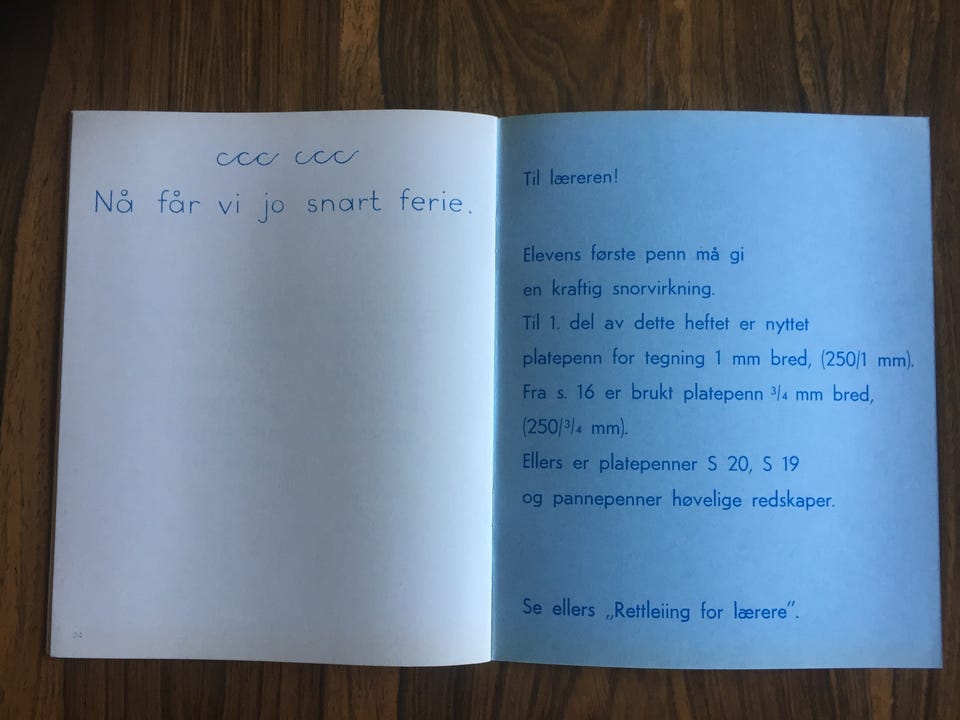 ccc ccc
Nå får vi jo snart ferie.
24
Til læreren!
Elevens første penn må gi
en kraftig snorvirkning.
Til 1. del av dette heftet er nyttet
platepenn for tegning 1 mm bred, (250/1 mm).
Fra s. 16 er brukt platepenn ³/₄ mm bred,
(250/³/₄ mm).
Ellers er platepenner S 20, S 19
og pannepenner høvelige redskaper.
Se ellers „Rettleiing for lærere”.